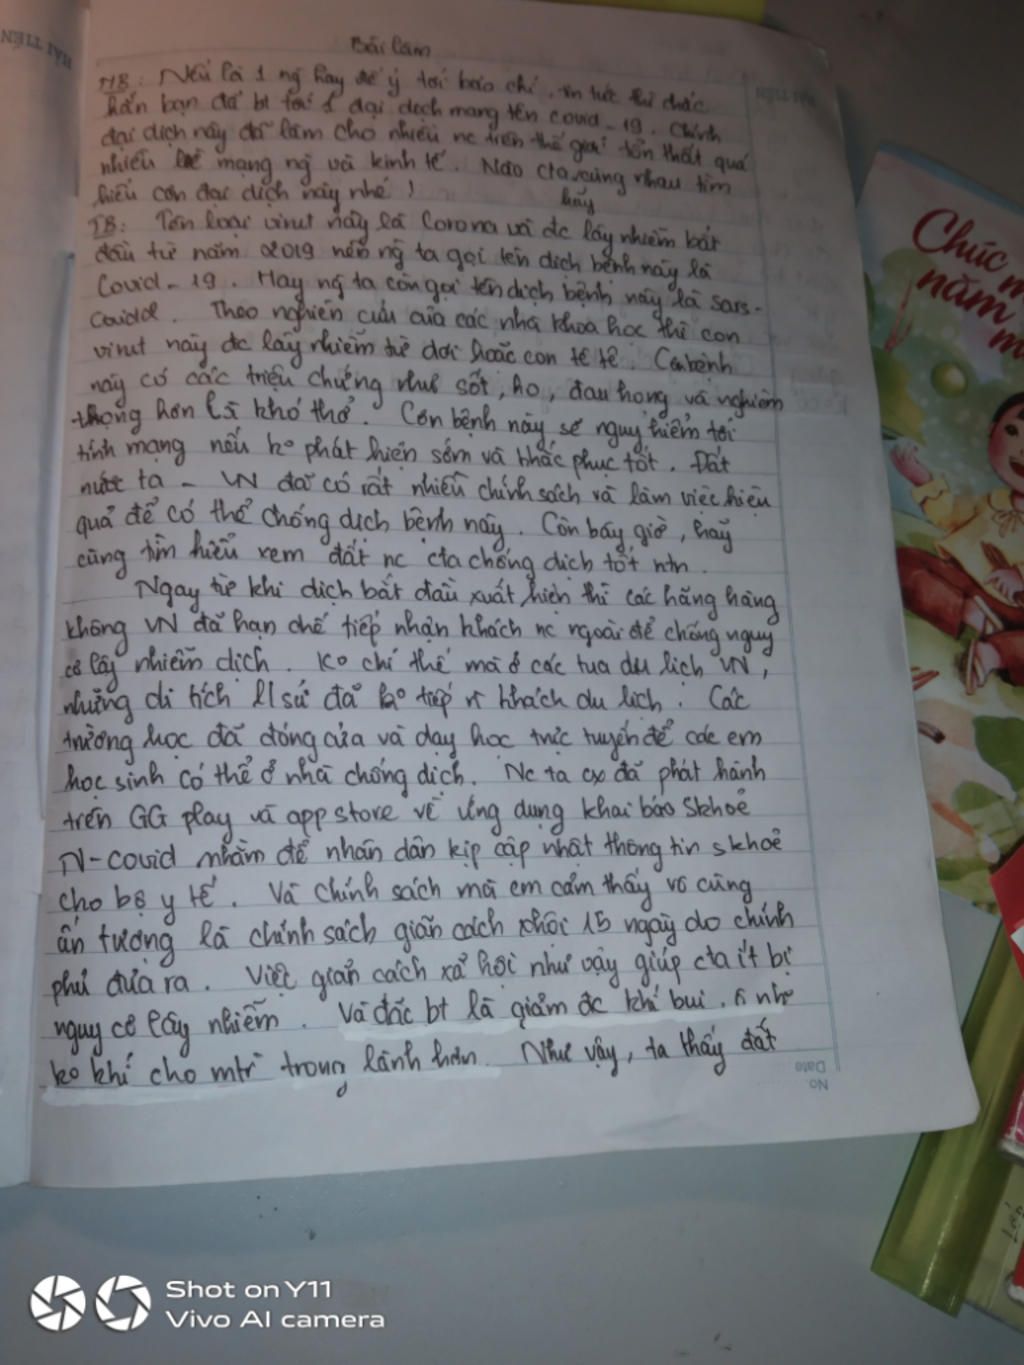 Bài làm
MB: Nếu là 1 ng hay để ý tới báo chí, tin tức thì chắc
hẳn bạn đã bt tới 1 đại dịch mang tên covid-19. Chính
đại dịch này đã làm cho nhiều nc trên thế giới tổn thất quá
nhiều về mạng ng và kinh tế. Nào cta cùng nhau tìm
hãy
hiểu cơn đại dịch này nhé!
TB: Tên loại virut này là Corona và đc lây nhiễm bắt
đầu từ năm 2019 nên ng ta gọi tên dịch bệnh này là
Covid-19. Hay ng ta còn gọi tên dịch bệnh này là Sars-
. Theo nghiên cứu của các nhà khoa học thì con
virut này đc lây nhiễm từ dơi hoặc con tê tê. Căn bệnh
này có các triệu chứng như sốt, ho, đau họng và nghiêm
trọng hơn là khó thở. Cơn bệnh này sẽ nguy hiểm tới
tính mạng nếu ko phát hiện sớm và khắc phục tốt. Đất
nước ta - VN đã có rất nhiều chính sách và làm việc hiệu
quả để có thể chống dịch bệnh này. Còn bây giờ, hãy
cùng tìm hiểu xem đất nc cta chống dịch tốt ntn.
Ngay từ khi dịch bắt đầu xuất hiện thì các hãng hàng
không VN đã hạn chế tiếp nhận khách nc ngoài để chống nguy
cơ lây nhiễm dịch. Ko chỉ thế mà ở các tua du lịch VN,
những di tích lsử đã ko tiếp khách du lịch. Các
trường học đã đóng cửa và dạy học trực tuyến để các em
học sinh có thể ở nhà chống dịch. Nc ta cx đã phát hành
trên GG play và app store về ứng dụng khai báo skhoẻ
N-covid nhằm để nhân dân kịp cập nhật thông tin skhoẻ
cho bộ y tế. Và chính sách mà em cảm thấy vô cùng
ấn tượng là chính sách giãn cách xhội 15 ngày do chính
phủ đưa ra. Việc giãn cách xã hội như vậy giúp cta ít bị
nguy cơ lây nhiễm. Và đặc bt là giảm đc khí bụi, ô nh
ko khí cho mtr trong lành hơn. Như vậy, ta thấy đất
No.
Date
HẢI TIẾN
Chúc m
năm
m
Shot on Y11
Vivo AI camera